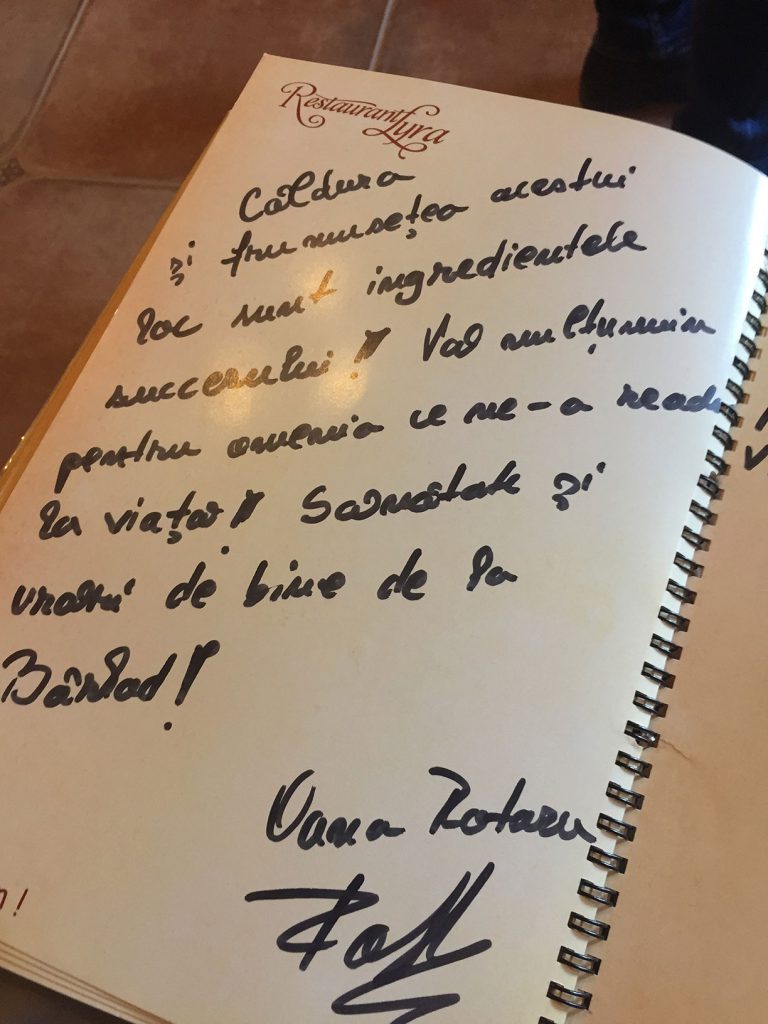 Restaurant Lyra
Căldura
și frumusețea acestui
loc sunt ingredientele
succesului! Vă mulțumim
pentru omenia ce ne-a readus
la viață! Sănătate și
urări de bine de la
Bârlad!
Oana Rotaru
!
V